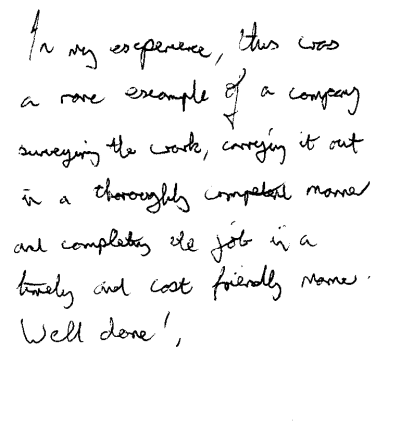 In my experience, this was
a rare example of a company
surveying the work, carrying it out
in a thoroughly competent manner
and completing the job in a
timely and cost friendly manner.
Well done!,